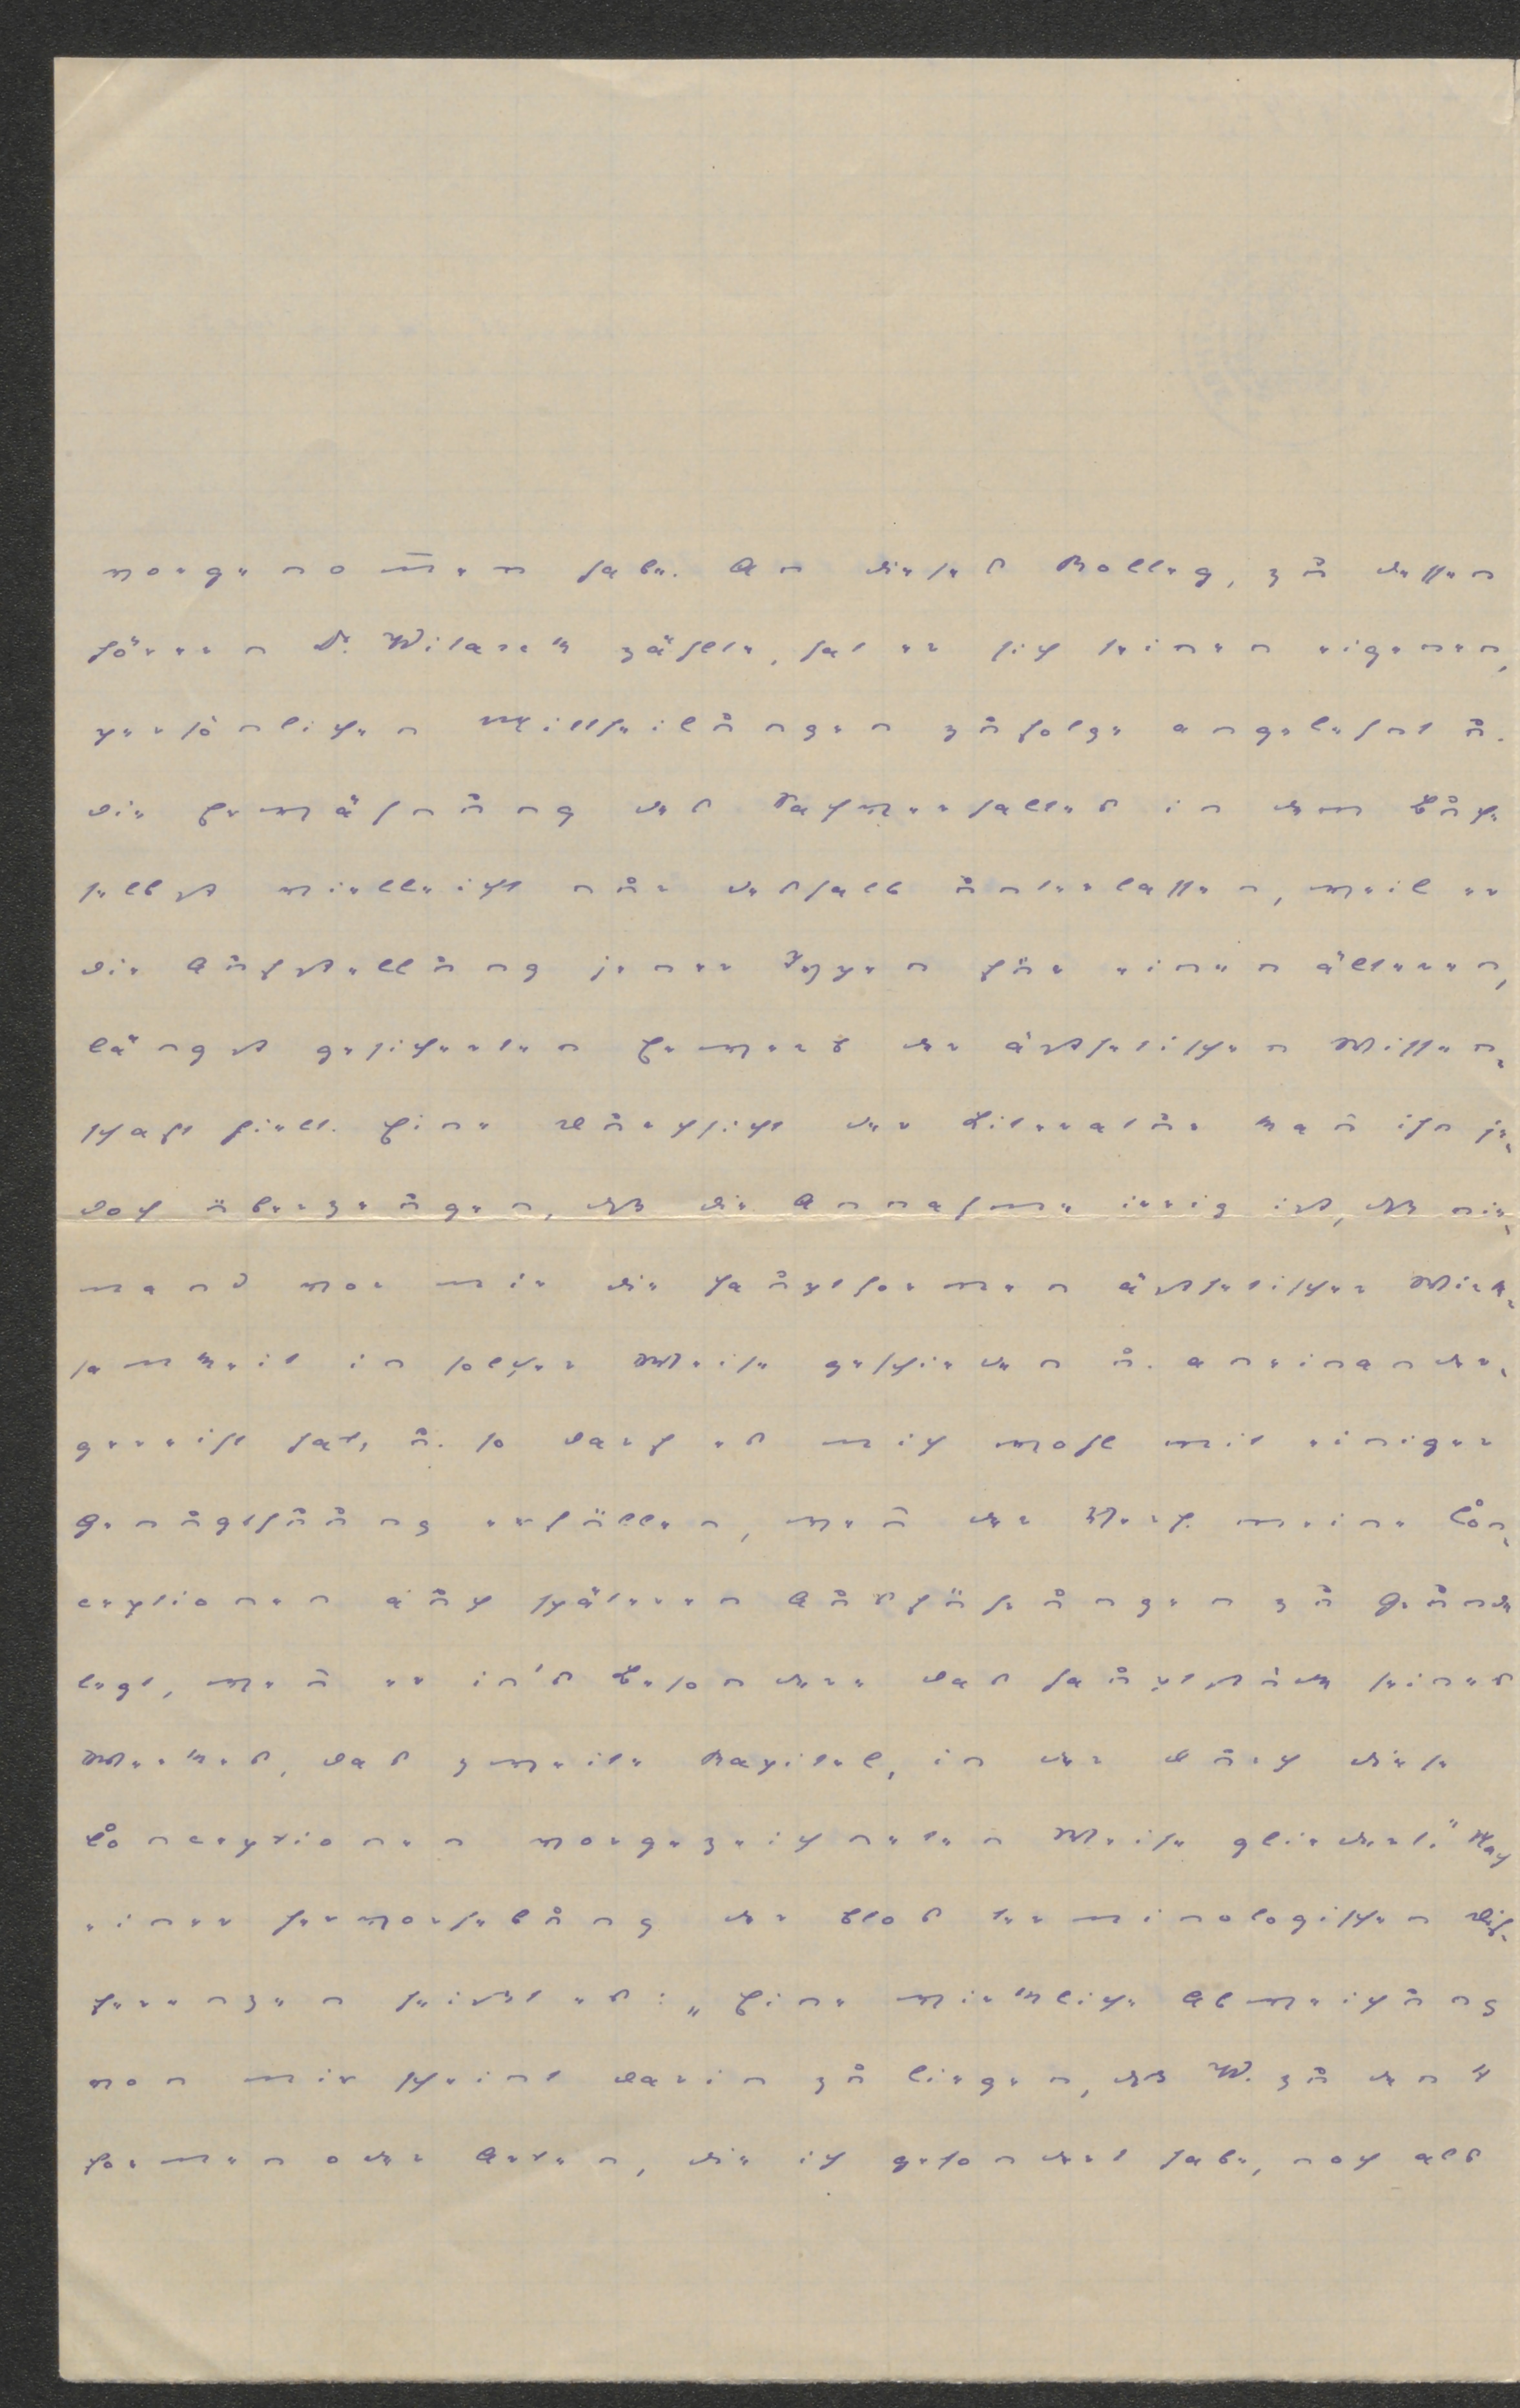 vorgenom̅en habe. An dieses Kolleg, zu dessen
Hörern Dr. Witasek zählte, hat er sich seinen eigenen,
persönlichen Mittheilungen zufolge angelehnt u.
die Erwähnung des Sachverhaltes in dem Buche
selbst vielleicht nur deshalb unterlassen, weil er
die Aufstellung jener Typen für einen älteren,
längst gesicherten Erwerb der ästhetischen Wissen-
schaft hielt. Eine Durchsicht der Literatur kan̅ ihn je-
doch überzeugen, dß die Annahme irrig ist, dß nie-
mand vor mir die Hauptformen ästhetischer Wirk-
samkeit in solcher Weise geschieden u. aneinander-
gereiht hat, u. so darf es mich wohl mit einiger
Genugthuung erfüllen, wen̅ der Verf. meine Con-
ceptionen auch späteren Ausführungen zu Grunde
legt, wen̅ er in's Besondere das Hauptstück seines
Werkes, das zweite Kapitel, in der durch diese
Conceptionen vorgezeichneten Weise gliedert." Nach
einer Hervorhebung der blos terminologischen Dif-
ferenzen heißt es: „Eine wirkliche Abweichung
von mir scheint darin zu liegen, dß W. zu den 4
Formen oder Arten, die ich gesondert habe, noch als